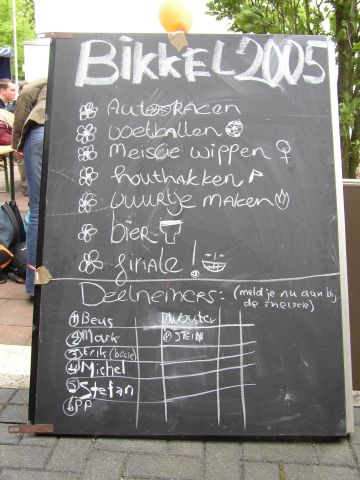 BIKKEL 2005
AUTORACEN
voetballen
Meisje wippen ♀
houthakken
vuurtje maken
bier
finale!
Deelnemers: (meld je nu aan bij
de meisjes)
1 Beus
2 Mark STEIN
3 Erik
4 Michel
5 Stefan
6 PP